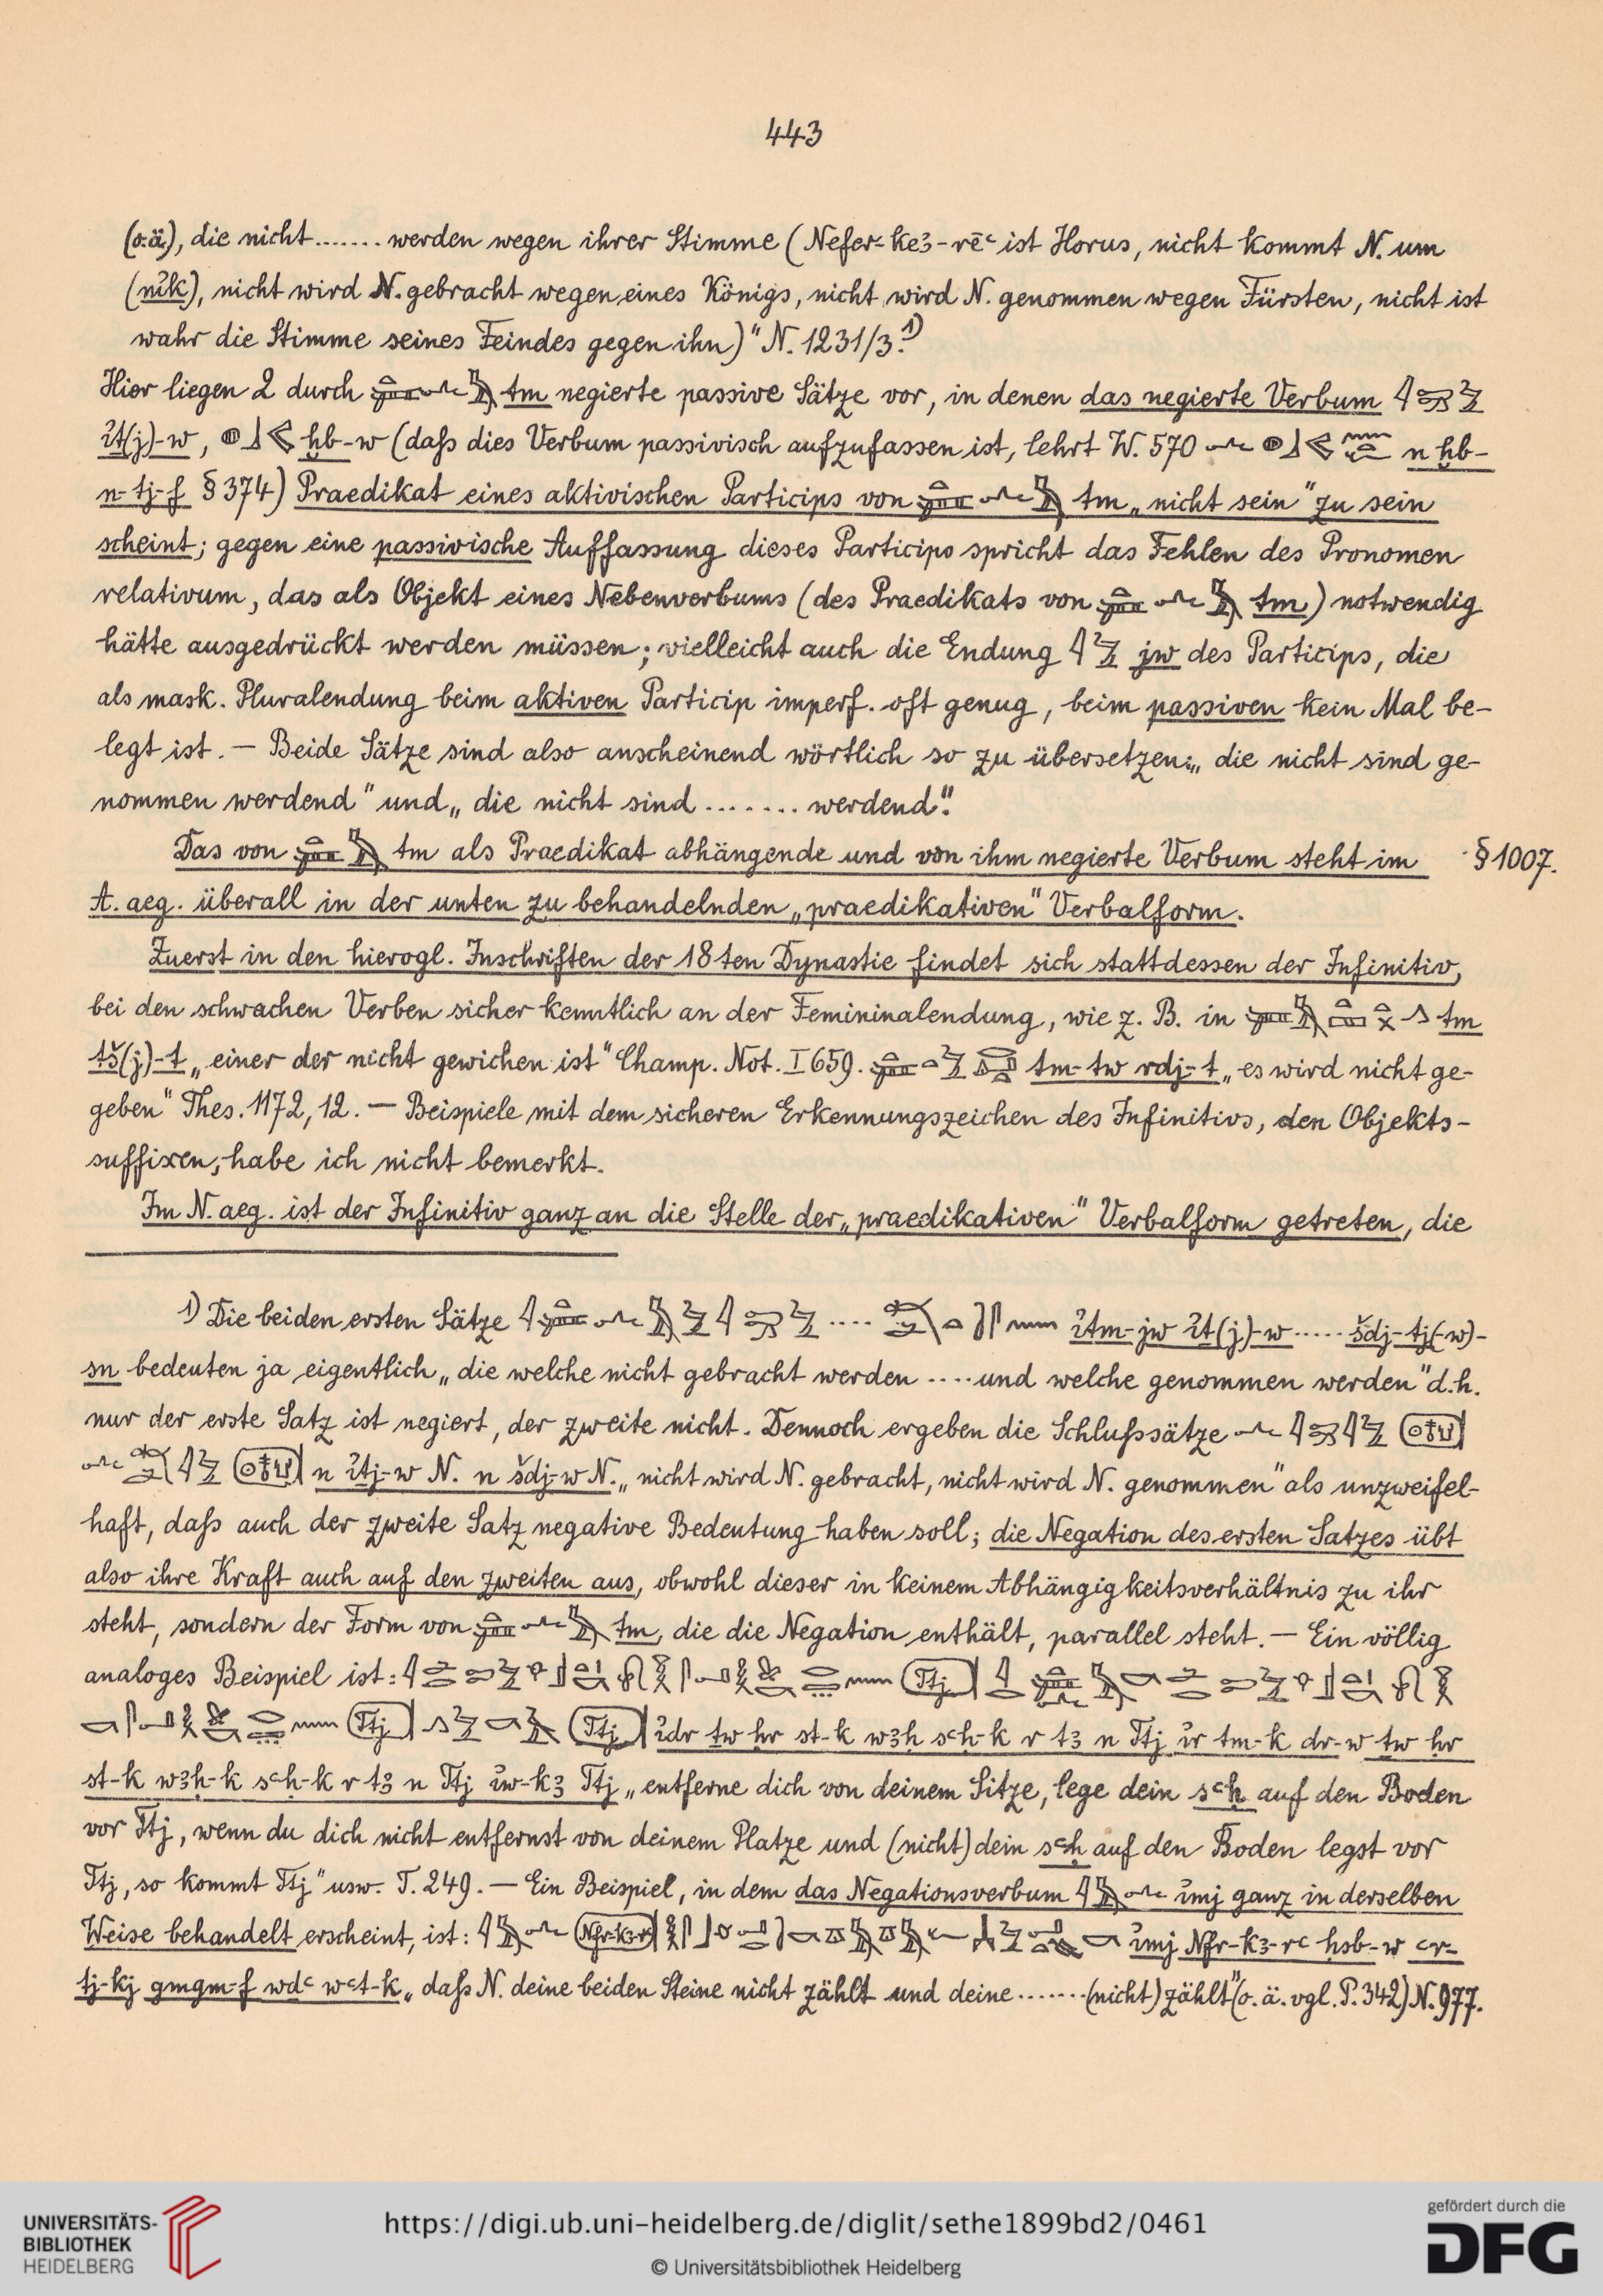 443
(o.ä), die nicht ....... werden wegen ihrer Stimme (Nefer-ke3-rēʿ ist Horus, nicht kommt N. um
(nik), nicht wird N. gebracht wegen eines Königs, nicht wird N. genommen wegen Fürsten, nicht ist
wahr die Stimme seines Feindes gegen ihn)" N. 1231/3.¹⁾
Hier liegen 2 durch tm negierte passive Sätze vor, in denen das negierte Verbum
ꞽt(j)-w, ḫb-w (daß dies Verbum passivisch aufzufassen ist, lehrt W. 570 n ḫb-
n-tj-f § 374) Praedikat eines aktivischen Particips von tm „nicht sein" zu sein
scheint; gegen eine passivische Auffassung dieses Particips spricht das Fehlen des Pronomen
relativum, das als Objekt eines Nebenverbums (des Praedikats von tm) notwendig
hätte ausgedrückt werden müssen; vielleicht auch die Endung jw des Particips, die
als mask. Pluralendung beim aktiven Particip imperf. oft genug, beim passiven kein Mal be-
legt ist. — Beide Sätze sind also anscheinend wörtlich so zu übersetzen: „die nicht sind ge-
nommen werdend" und „die nicht sind ....... werdend".
Das von tm als Praedikat abhängende und von ihm negierte Verbum steht im § 1007.
A. aeg. überall in der unten zu behandelnden „praedikativen" Verbalform.
Zuerst in den hierogl. Inschriften der 18ten Dynastie findet sich stattdessen der Infinitiv,
bei den schwachen Verben sicher kenntlich an der Femininalendung, wie z. B. in tm
tš(j)-t „einer der nicht gewichen ist" Champ. Not. I 659. tm-tw rdj-t „es wird nicht ge-
geben" Thes. 1172, 12. — Beispiele mit dem sicheren Erkennungszeichen des Infinitivs, den Objekts-
suffixen, habe ich nicht bemerkt.
Im N. aeg. ist der Infinitiv ganz an die Stelle der „praedikativen" Verbalform getreten, die
1) Die beiden ersten Sätze .... ꞽtm-jw ꞽt(j)-w ..... šdj-tj(-w)-
sn bedeuten ja eigentlich „die welche nicht gebracht werden .... und welche genommen werden" d. h.
nur der erste Satz ist negiert, der zweite nicht. Dennoch ergeben die Schlußsätze
n ꞽtj-w N. n šdj-w N. „nicht wird N. gebracht, nicht wird N. genommen" als unzweifel-
haft, daß auch der zweite Satz negative Bedeutung haben soll; die Negation des ersten Satzes übt
also ihre Kraft auch auf den zweiten aus, obwohl dieser in keinem Abhängigkeitsverhältnis zu ihr
steht, sondern der Form von tm, die die Negation enthält, parallel steht. — Ein völlig
analoges Beispiel ist: Ttj
Ttj Ttj ꞽdr tw ḥr st-k w3ḥ sʿḥ-k r t3 n Ttj ꞽr tm-k dr-w tw ḥr
st-k w3ḥ-k sʿḥ-k r t3 n Ttj ꞽw-k3 Ttj „entferne dich von deinem Sitze, lege dein sʿḥ auf den Boden
vor Ttj, wenn du dich nicht entfernst von deinem Platze und (nicht) dein sʿḥ auf den Boden legst vor
Ttj, so kommt Ttj" usw. T. 249. — Ein Beispiel, in dem das Negationsverbum ꞽmj ganz in derselben
Weise behandelt erscheint, ist: Nfr-k3-rʿ ꞽmj Nfr-k3-rʿ ḥsb-w ʿr-
tj-kj gmgm-f wdʿ wʿt-k „daß N. deine beiden Steine nicht zählt und deine ....... (nicht) zählt" (o. ä. vgl. P. 342) N. 977.
UNIVERSITÄTS-
BIBLIOTHEK
HEIDELBERG
https://digi.ub.uni-heidelberg.de/diglit/sethe1899bd2/0461
© Universitätsbibliothek Heidelberg
gefördert durch die
DFG